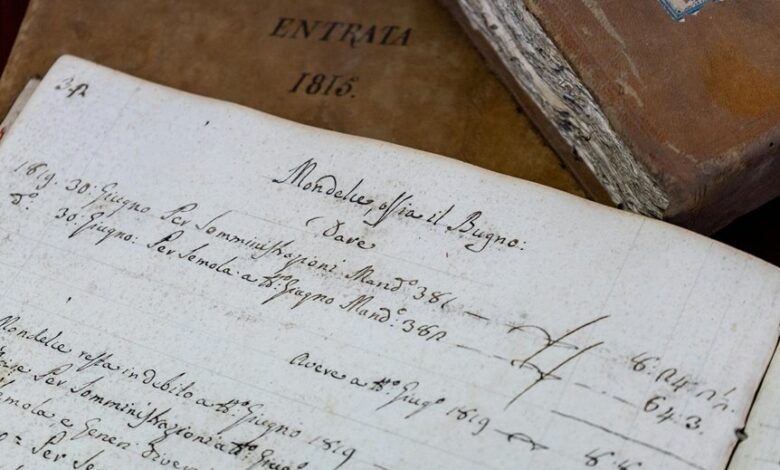 ENTRATA
1815.
Mondelce, ossia il Bugno:
Dare
1819. 30: Giugno Per Somministrazioni Mand.º 381
d.º 30. Giugno: Per Semola a tt.º Giugno Mand.º 382
64.3.
Avere a tt.º Giug.º 1819
Mondelce resta in debito a tt.º Giugno 1819
Per Somministrazioni a tt.º Giugno
Semola, e Generi
Per Sem